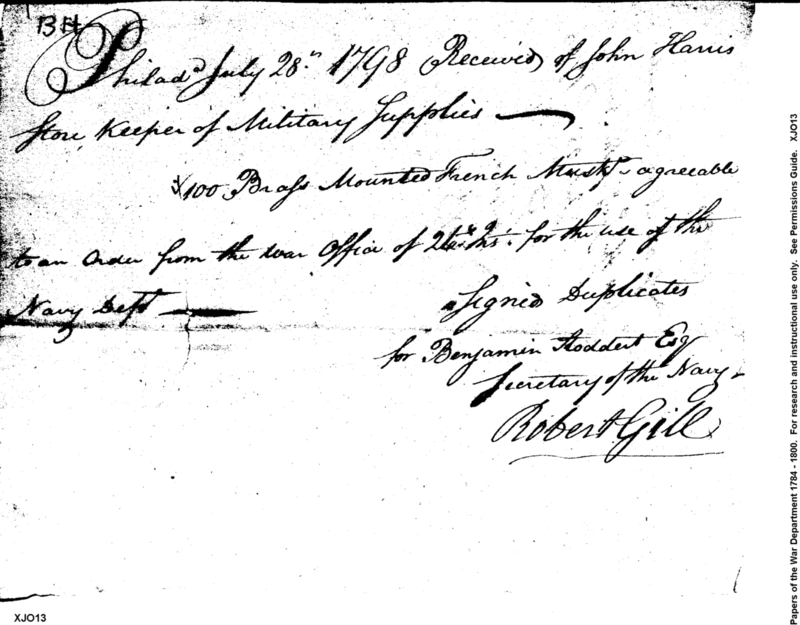 BH
Philadª July 28th 1798 Received of John Harris
Store Keeper of Military Supplies
100 Brass Mounted French Muskts agreeable
to an Order from the War Office of 24th Ins. for the use of the
Navy Dept
Signed Duplicates
for Benjamin Stoddert Esq
Secretary of the Navy
Robert Gill
XJO13
Papers of the War Department 1784 - 1800. For research and instructional use only. See Permissions Guide. XJO13